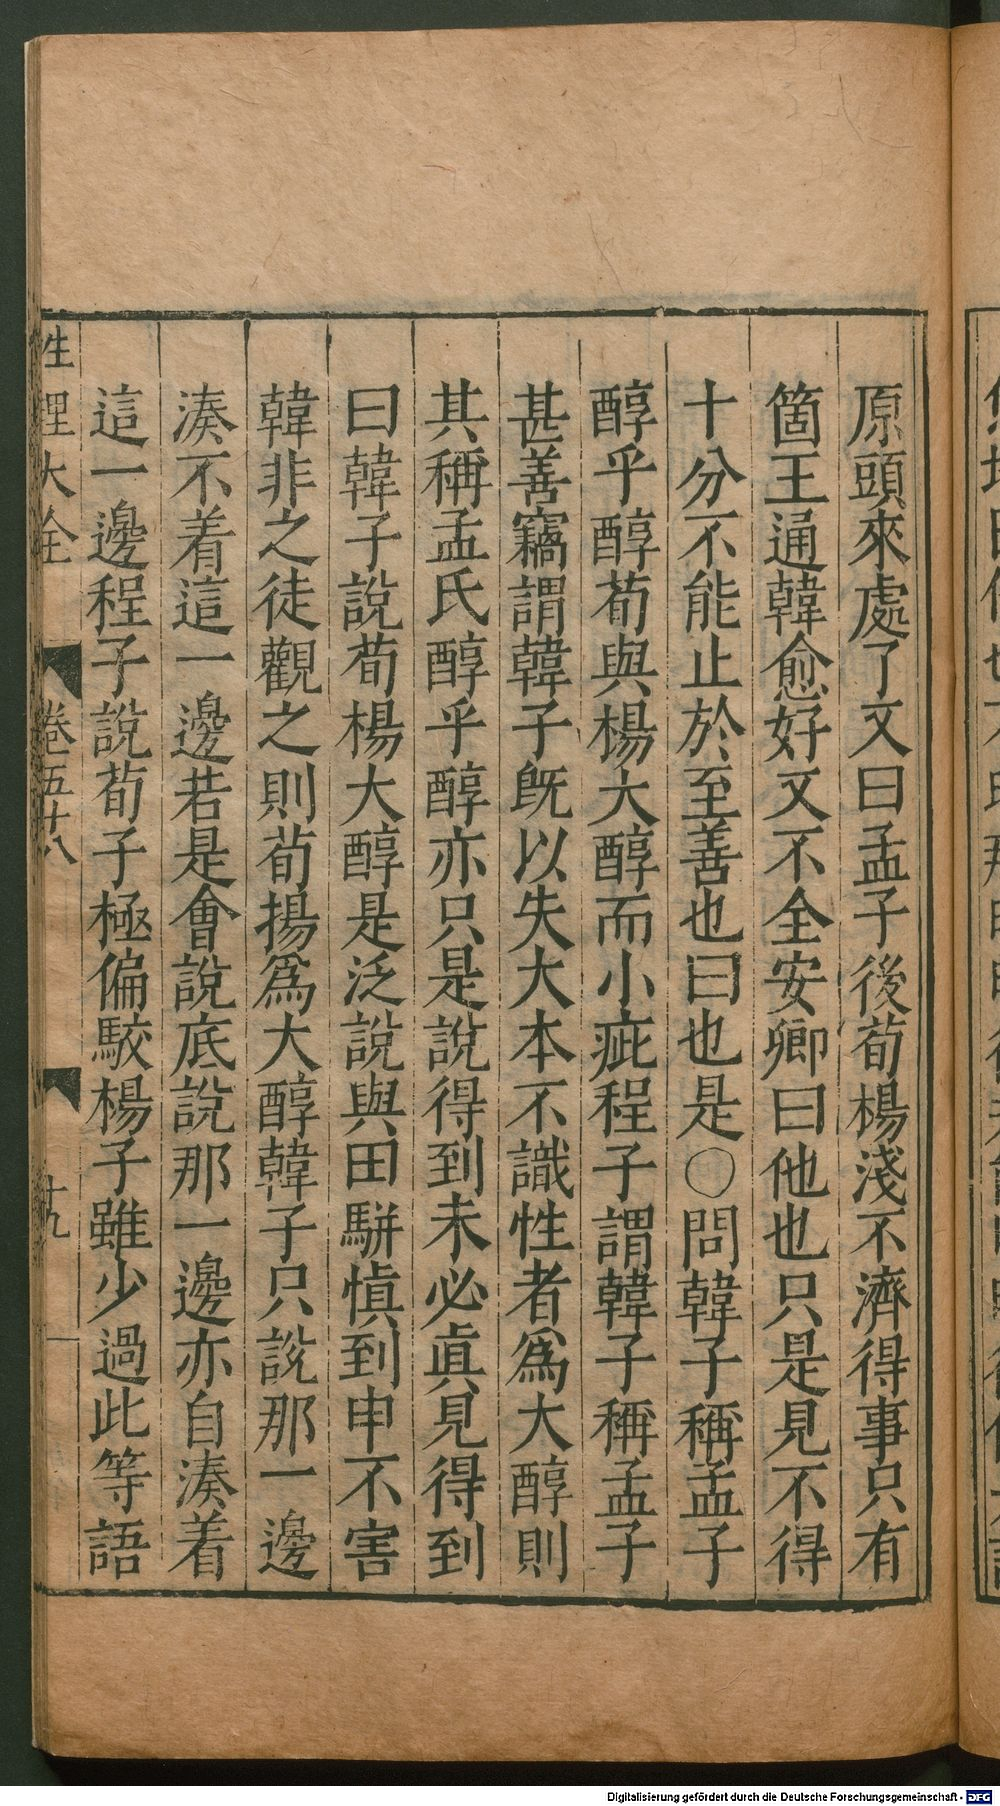 原頭來處了文曰孟子後荀楊淺不濟得事只有
箇王通韓愈好又不全安卿曰他也只是見不得
十分不能止於至善也曰也是○問韓子稱孟子
醇乎醇荀與楊大醇而小疵程子謂韓子稱孟子
甚善竊謂韓子旣以失大本不識性者爲大醇則
其稱孟氏醇乎醇亦只是說得到未必眞見得到
曰韓子說荀楊大醇是泛說與田駢愼到申不害
韓非之徒觀之則荀揚爲大醇韓子只說那一邊
湊不着這一邊若是會說底說那一邊亦自湊着
這一邊程子說荀子極偏駁楊子雖少過此等語
性理大全 卷五十八 十九
Digitalisierung gefördert durch die Deutsche Forschungsgemeinschaft - DFG